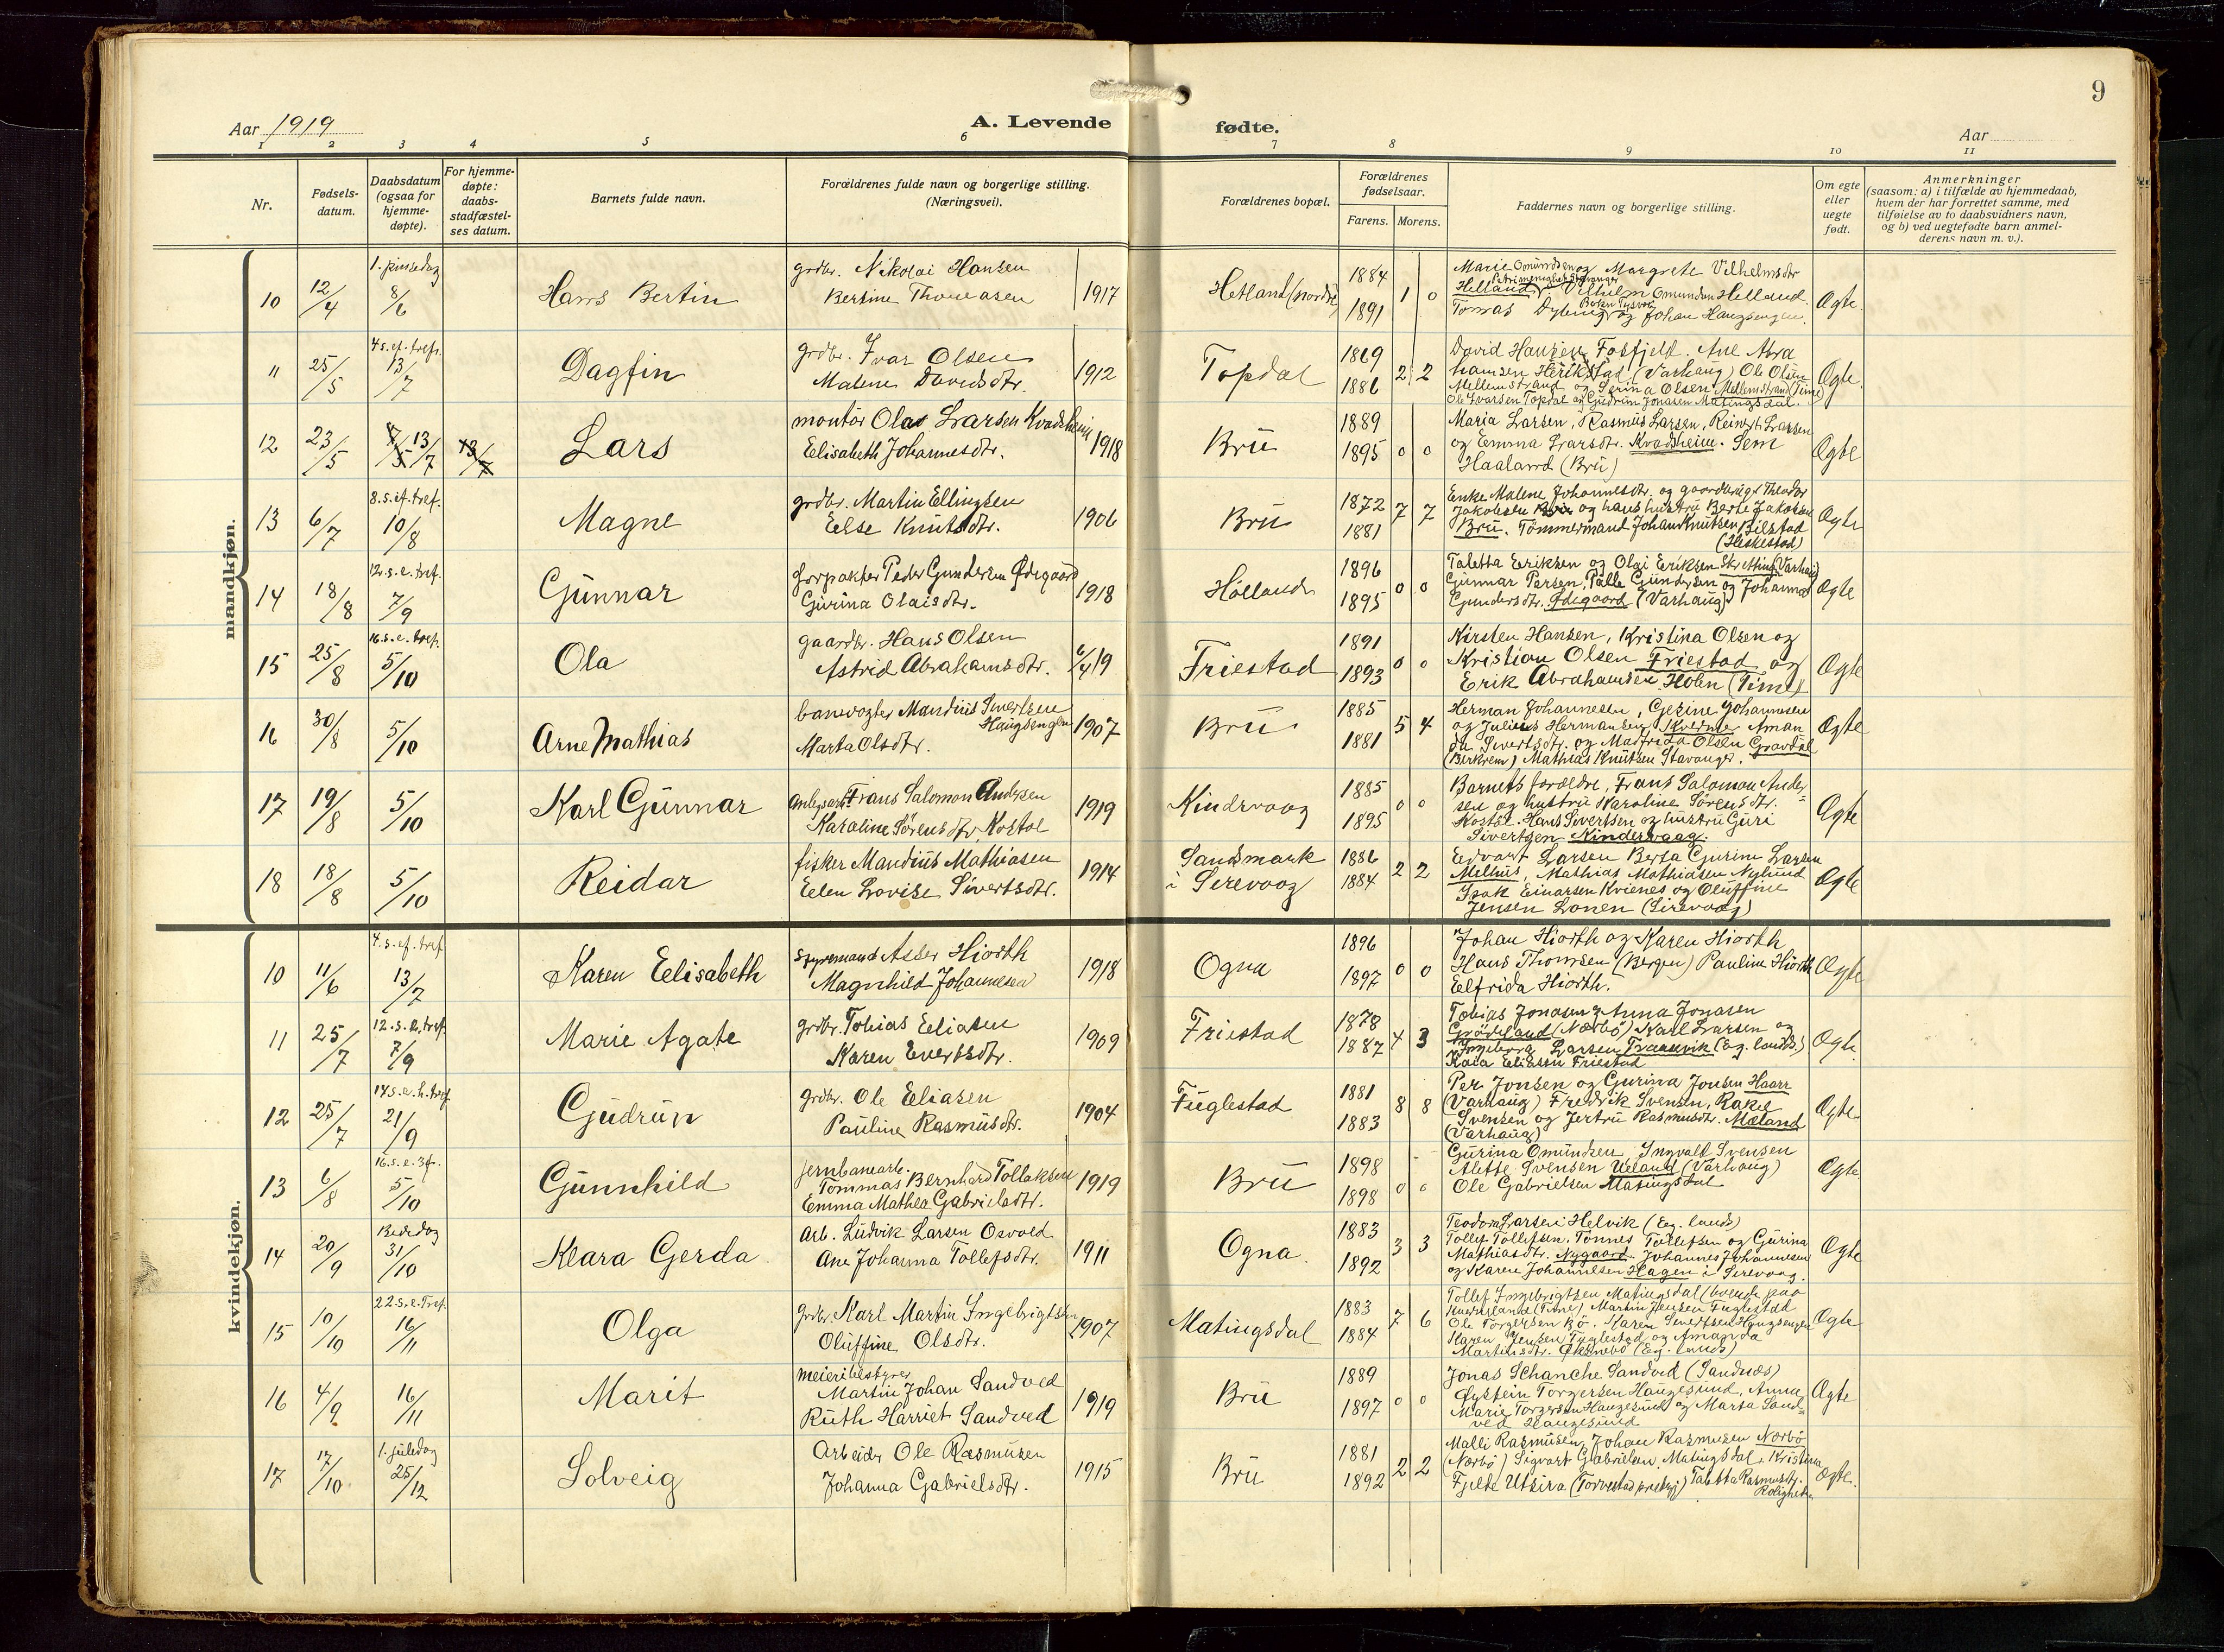 9
Aar 1919
A. Levende fødte.
Aar
1 2 3 4 5 6 7 8 9 10 11
Nr.
Fødsels-
datum.
Daabsdatum
(ogsaa for
hjemme-
døpte).
For hjemme-
døpte:
daabs-
stadfæstel-
ses datum.
Barnets fulde navn.
Forældrenes fulde navn og borgerlige stilling.
(Næringsvei).
Forældrenes bopæl.
Forældrenes
fødselsaar.
Farens. Morens.
Faddernes navn og borgerlige stilling.
Om egte
eller
uegte
født.
Anmerkninger
(saasom: a) i tilfælde av hjemmedaab,
hvem der har forrettet samme, med
tilføielse av to daabsvidners navn,
og b) ved uegtefødte barn anmel-
derens navn m. v.).
mandkjøn.
1. pinsedag
10 12/4 8/6 Hans Bertin
grdbr. Nikolai Hansen
Bertine Thomasen 1917
Hetland (nordre)
1884
1891 1 0
Marie Omundsen og Margrete Vilhelmsdr
Helland, Vilhelm Omundsen Helland.
Tomas Dybing og Johan Haugsengen.
Ægte.
4. s. ef. trefr.
11 25/5 13/7 Dagfin
grdbr. Ivar Olsen
Malene Davidsdtr. 1912
Topdal
1869
1886 2 2
David Hansen Fosfjeld. Ane Abra
hamsen Herikstad (Varhaug) Ole Olsen
Mellemstrand og Serina Olsen Mellemstrand (Time)
Ole Ivarsen Topdal og Gudrun Jonasen Matingsdal.
Ægte.
12 23/5 13/7 Lars
montör Olav Larsen Kvadsheim
Elisabeth Johannesdtr. 1918
Brü
1889
1895 0 0
Maria Larsen, Rasmus Larsen, Reinert Larsen
og Emma Larsdtr. Kvadsheim. Sem
Haaland (Brü)
Ægte
8. s. ef. tref.
13 6/7 10/8 Magne
grdbr. Martin Ellingsen
Else Knutsdtr. 1906
Brü
1872
1881 7 7
Enke Malene Johannesdtr. og gaardbruger Theodor
Jakobsen og hans hustru Berte Jakobsen
Brü. Tømmermand Johan Knutsen Bilstad
(Heskestad)
Ægte
12. s. e. tref.
14 18/8 7/9 Gunnar
forpakter Peder Gundersen Ødegaard
Gurina Olaisdtr. 1918
Hölland
1896
1895 0 0
Taletta Eriksen og Olai Eriksen Skretting (Varhaug)
Gunnar Persen, Palle Gundersen og Johanna
Gundersdtr. Ødegaard (Varhaug)
Ægte
16. s. e. tref.
15 25/8 5/10 Ola
gaardbr. Hans Olsen
Astrid Abrahamsdtr. 6/4 19
Friestad
1891
1893 0 0
Kirsten Hansen, Kristina Olsen og
Kristian Olsen Friestad og
Erik Abrahamsen Holen (Time)
Ægte
16 30/8 5/10 Arne Mathias
banevogter Mandius Sivertsen
Haugsengen
Marta Olsdtr. 1907
Brü
1885
1881 5 4
Herman Johannesen, Gezine Johannesen
og Julius Hermansen, Kverme Aman
da Sivertsdtr. og Madfrida Olsen Gravdal
(Birkrem) Mathias Knutsen Stavanger.
Ægte
17 19/8 5/10 Karl Gunnar
Anlegsarb. Frans Salomon Andersen
Karoline Sørensdtr Kostøl 1919
Kindervaag
1885
1895 0 0
Barnets forældre, Frans Salomon Ander=
sen og hustru Karoline Sørensdtr.
Kostøl. Hans Sivertsen og hustru Guri
Sivertsen Kindervaag.
Ægte
18 18/8 5/10 Reidar
fisker Mandius Mathiasen
Elen Lovise Sivertsdtr. 1914
Sandsmark
i Serevoag
1886
1884 2 2
Edvart Larsen Berta Gurine Larsen
Melhus, Mathias Mathiasen Nylund
Isak Einarsen Kvienes og Oluffine
Jensen Lonen (Sirevaag)
Ægte
kvindekjøn.
4. s. ef. tref
10 11/6 13/7 Karen Elisabeth
styrmand Asser Hiorth
Magnhild Johannesen 1918
Ogna
1896
1897 0 0
Johan Hiorth og Karen Hiorth
Hans Thomsen (Bergen) Pauline Hiorth
Elfrida Hiorth.
Ægte
12. s. e. tref.
11 25/7 7/9 Marie Agate
grdbr. Tobias Eliasen
Karen Evertsdtr. 1909
Friestad
1878
1887 4 3
Tobias Jonasen og Anna Jonasen
Grödeland (Nærbö) Karl Larsen og
Ingeborg Larsen Traasvik (Eg. lands)
Kaia Eliasen Friestad
Ægte.
14 s. e. h. tref
12 25/7 21/9 Gudrun
grdbr. Ole Eliasen
Pauline Rasmusdtr. 1904
Fuglestad
1881
1883 8 8
Per Jonsen og Gurina Jonsen Haarr
(Varhaug) Fredrik Svensen, Rakel
Svensen og Jertru Rasmusdtr. Mæland
(Varhaug)
Ægte
16. s. e. 3f.
13 6/8 5/10 Gunnhild
jernbanearb.
Tommas Bernhard Tollaksen
Emma Mathea Gabrielsdtr. 1919
Brü
1898
1898 0 0
Gurina Omundsen, Ingvald Svensen
Alette Svensen Ueland (Varhaug)
Ole Gabrielsen Matingsdal
Ægte
Bededag
14 20/9 31/10 Klara Gerda.
Arb. Ludvik Larsen Osvold
Ane Johanna Tollefsdtr. 1911
Ogna.
1883
1892 3 3
Teodor Larsen Helvik (Eg. lands)
Tollef Tollefsen, Tønnes Tollefsen og Gurina
Mathiasdtr. Nygaard. Johannes Johannesen
og Karen Johannesen Hagen i Serevoag.
Ægte
22. s. e. Tref.
15 10/10 16/11 Olga
grdbr. Karl Martin Ingebrigtsen
Oluffine Olsdtr. 1907
Matingsdal
1883
1884 7 6
Tollef Ingebrigtsen Matingsdal (boende paa
Kverneland (Time) Martin Jensen Fuglestad
Ole Torgersen Bö. Karen Sivertsen Haugsengen
Karen Jensen Fuglestad og Amanda
Martinsdtr. Øksnebö (Eg. lands)
Ægte
16 4/9 16/11 Marit
meieribestyrer
Martin Johan Sandved
Ruth Harriet Sandved 1919
Brü
1889
1897 0 0
Jonas Schanche Sandved (Sandnæs)
Øystein Torgersen Haugesund, Anna
Marie Torgersen Haugesund og Marta Sand=
ved Haugesund
Ægte
1. juledag
17 17/10 25/12 Solveig
Arbeider Ole Rasmusen
Johanna Gabrielsdtr. 1915
Brü
1881
1892 2 2
Malli Rasmusen, Johan Rasmusen Nærbö
(Nærbö) Sigvart Gabrielsen Matingsdal, Kristina
Fjelte Utsira (Torvestad prestegj) Taletta Rasmusdtr.
Roligheten
Ægte.